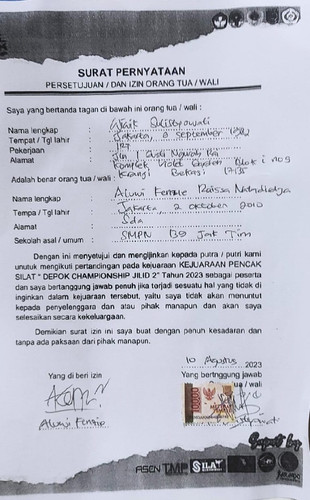 SURAT PERNYATAAN
PERSETUJUAN / DAN IZIN ORANG TUA / WALI
Saya yang bertanda tagan di bawah ini orang tua / wali :
Nama lengkap :
Tempat / Tgl lahir : Jakarta, september
Pekerjaan : IRT
Alamat : Jln
Komplek Violet Garden Blok i no 9
Kranji Bekasi 17135
Adalah benar orang tua / wali :
Nama lengkap : Aluwi Fennie Raissa
Tempa / Tgl lahir : Jakarta, 2 Oktober 2010
Alamat : Sda
Sekolah asal / umum : SMPN 139 Jak Tim
Dengan ini menyetujui dan mengijinkan kepada putra / putri kami
unutuk mengikuti pertandingan pada kejuaraan KEJUARAAN PENCAK
SILAT " DEPOK CHAMPIONSHIP JILID 2" Tahun 2023 sebagai peserta
dan saya bertanggung jawab penuh jika tarjadi sesuatu hal yang tidak di
inginkan dalam kejuaraan tersebut, yaitu saya tidak akan menuntut
kepada penyelenggara dan atau pihak manapun dan akan saya
selesaikan secara kekeluargaan.
Demikian surat izin ini saya buat dengan penuh kesadaran dan
tanpa ada paksaan dari pihak manapun.
10 Agustus 2023
Yang di beri izin
Yang bertnggung jawab
ua / wali
10000
Support by
ASEN TMP SILAT